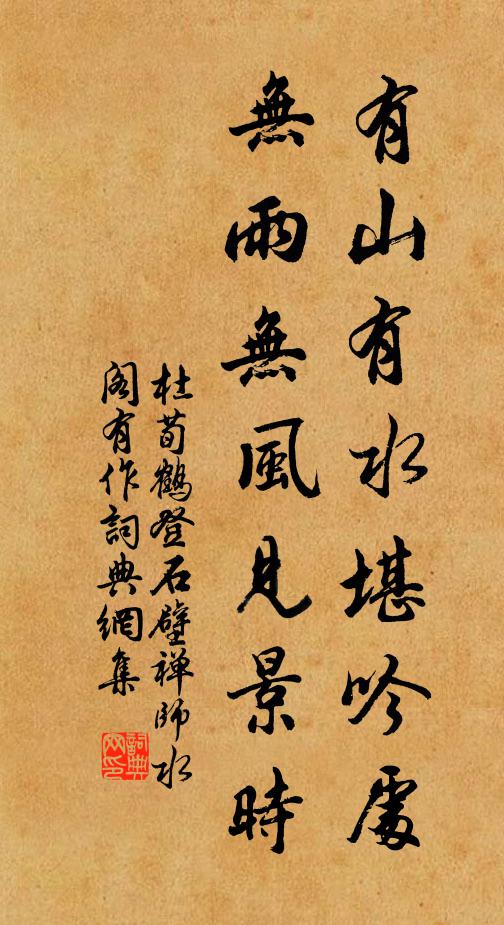 有山有水堪吟處
無雨無風見景時
杜荀鶴登石壁禅師水
閣有作詞典網集
詞典
网印